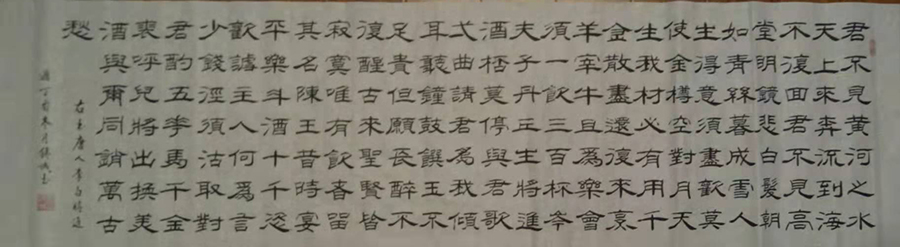 君不見黃河之水
天上來奔流到海
不復回君不見高
堂明鏡悲白髮朝
如青絲暮成雪人
生得意須盡歡莫
使金樽空對月天
生我材必有用千
金散盡還復來烹
羊宰牛且為樂會
須一飲三百杯岑
夫子丹丘生將進
酒桮莫停與君歌
弌曲請君為我傾
耳聽鐘鼓饌玉不
足貴但願長醉不
復醒古來聖賢皆
寂寞唯有飲者留
其名陳王昔時宴
平樂斗酒十千恣
歡謔主人何為言
少錢徑須沽取對
君酌五花馬千金
裘呼兒將出換美
酒與爾同銷萬古
愁
唐人李白將進
酒丁酉冬月